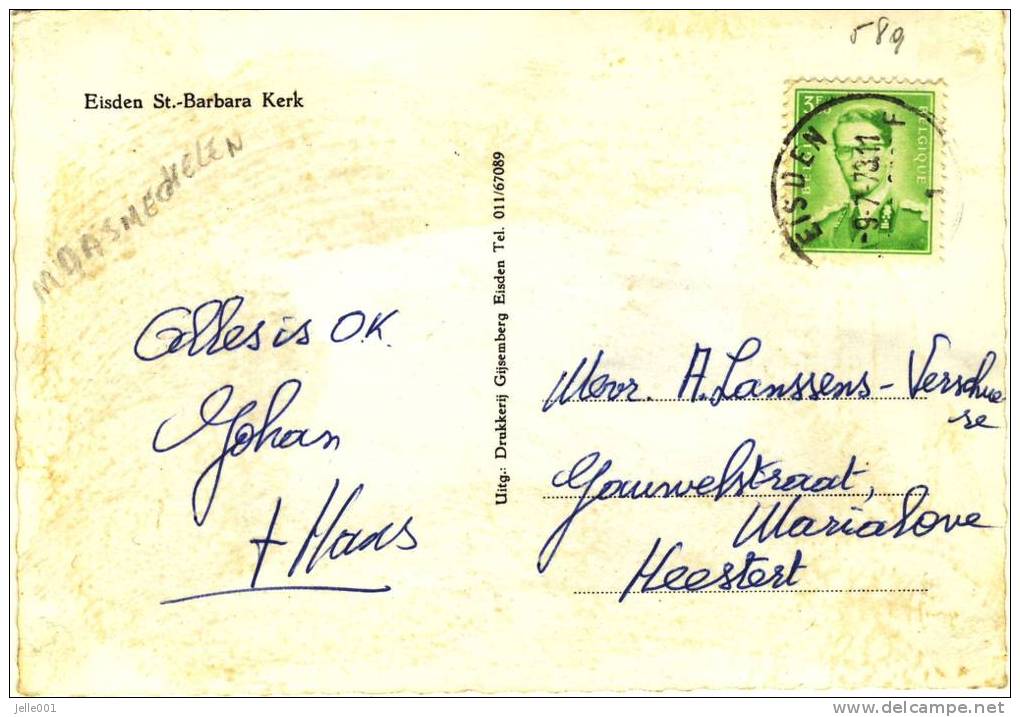 589
Eisden St.-Barbara Kerk
MAASMECHELEN
3F50
BELGIQUE
EISDEN
-9-7-73 11
F
Uitg.: Drukkerij Gijsemberg Eisden Tel. 011/67089
Alles is O.K.
Johan
+ Hans
Mevr. A. Lanssens - Verschue
re
Gouwelstraat,
Marialove
Heestert
jelle001
delcampe.net